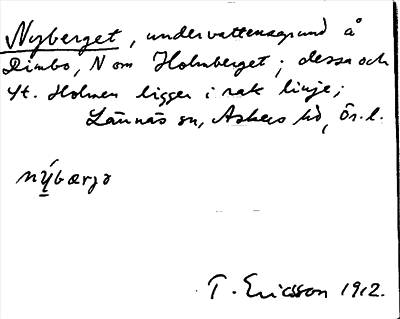 Nyberget, undervattensgrund å
Rimbo, N om Holmberget; dessa och
St. Holmen ligger i rak linje;
Lännäs sn, Askers hd, Ör. l.
nýbærjə
T. Ericsson 1912.